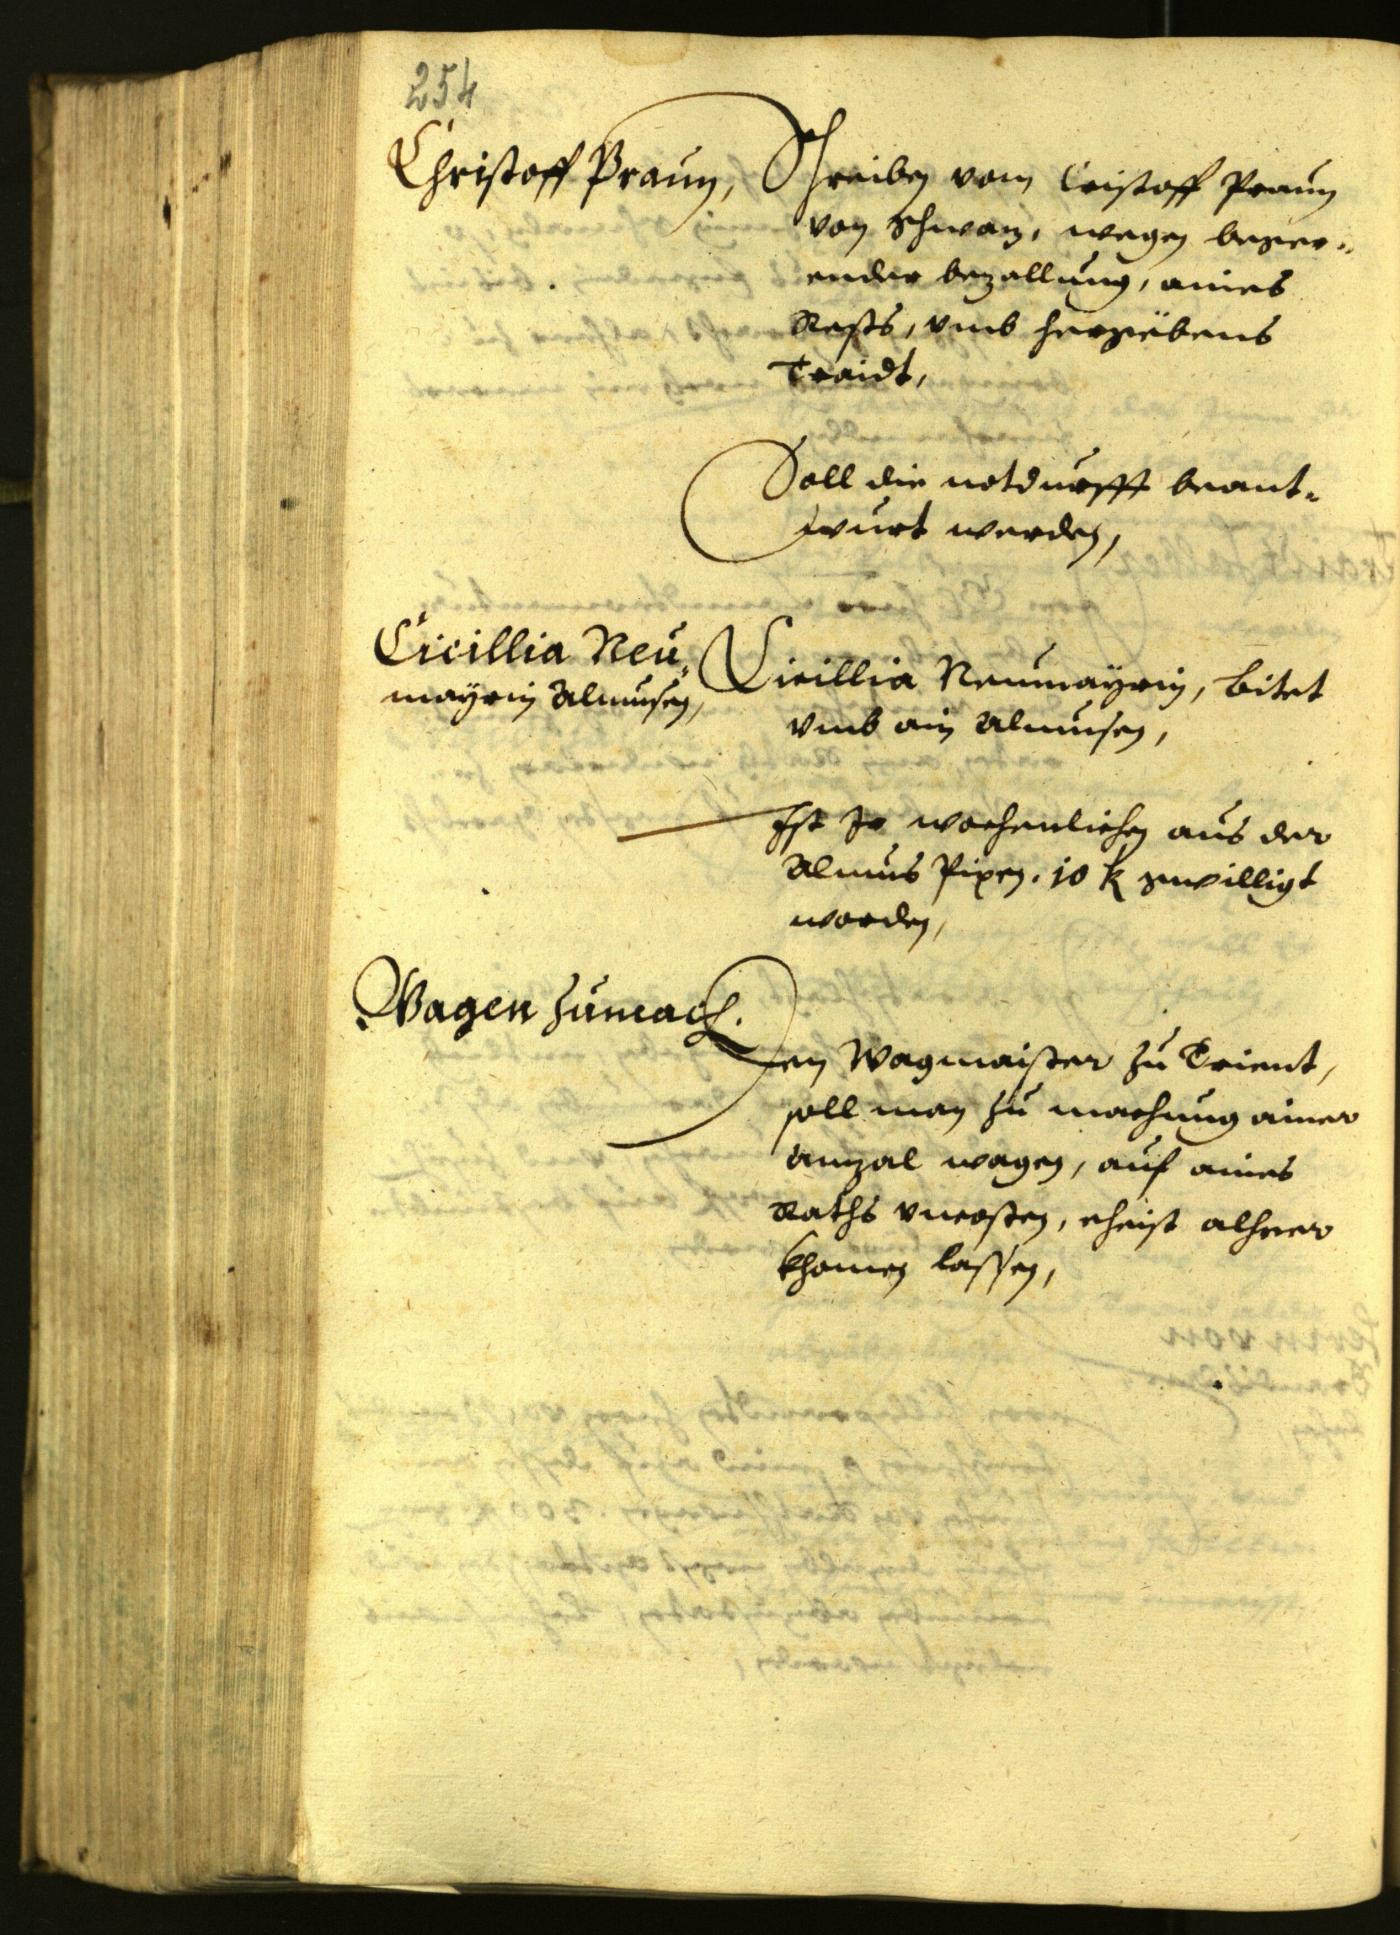 254
Christoff Praun,
Schreiben vom Cristoff Praun
von Schwaz, wegen begeer-
ender bezallung, aines
Rests, vmb hergebens
Traidt,
Soll die notdurfft beant-
wurt werden,
Cicillia Neu-
mayrin Almusen,
Cicillia Neumayrin, bitet
vmb ain Almusen,
Ist Ir wochenlichen aus der
Almus Pixen. 10 k gwilligt
worden,
Wagen zumach.
Den Wagmaister zu Trient,
soll man zu machung ainer
anzal wagen, auf aines
Raths vncosten, eheist alheer
khomen lassen,